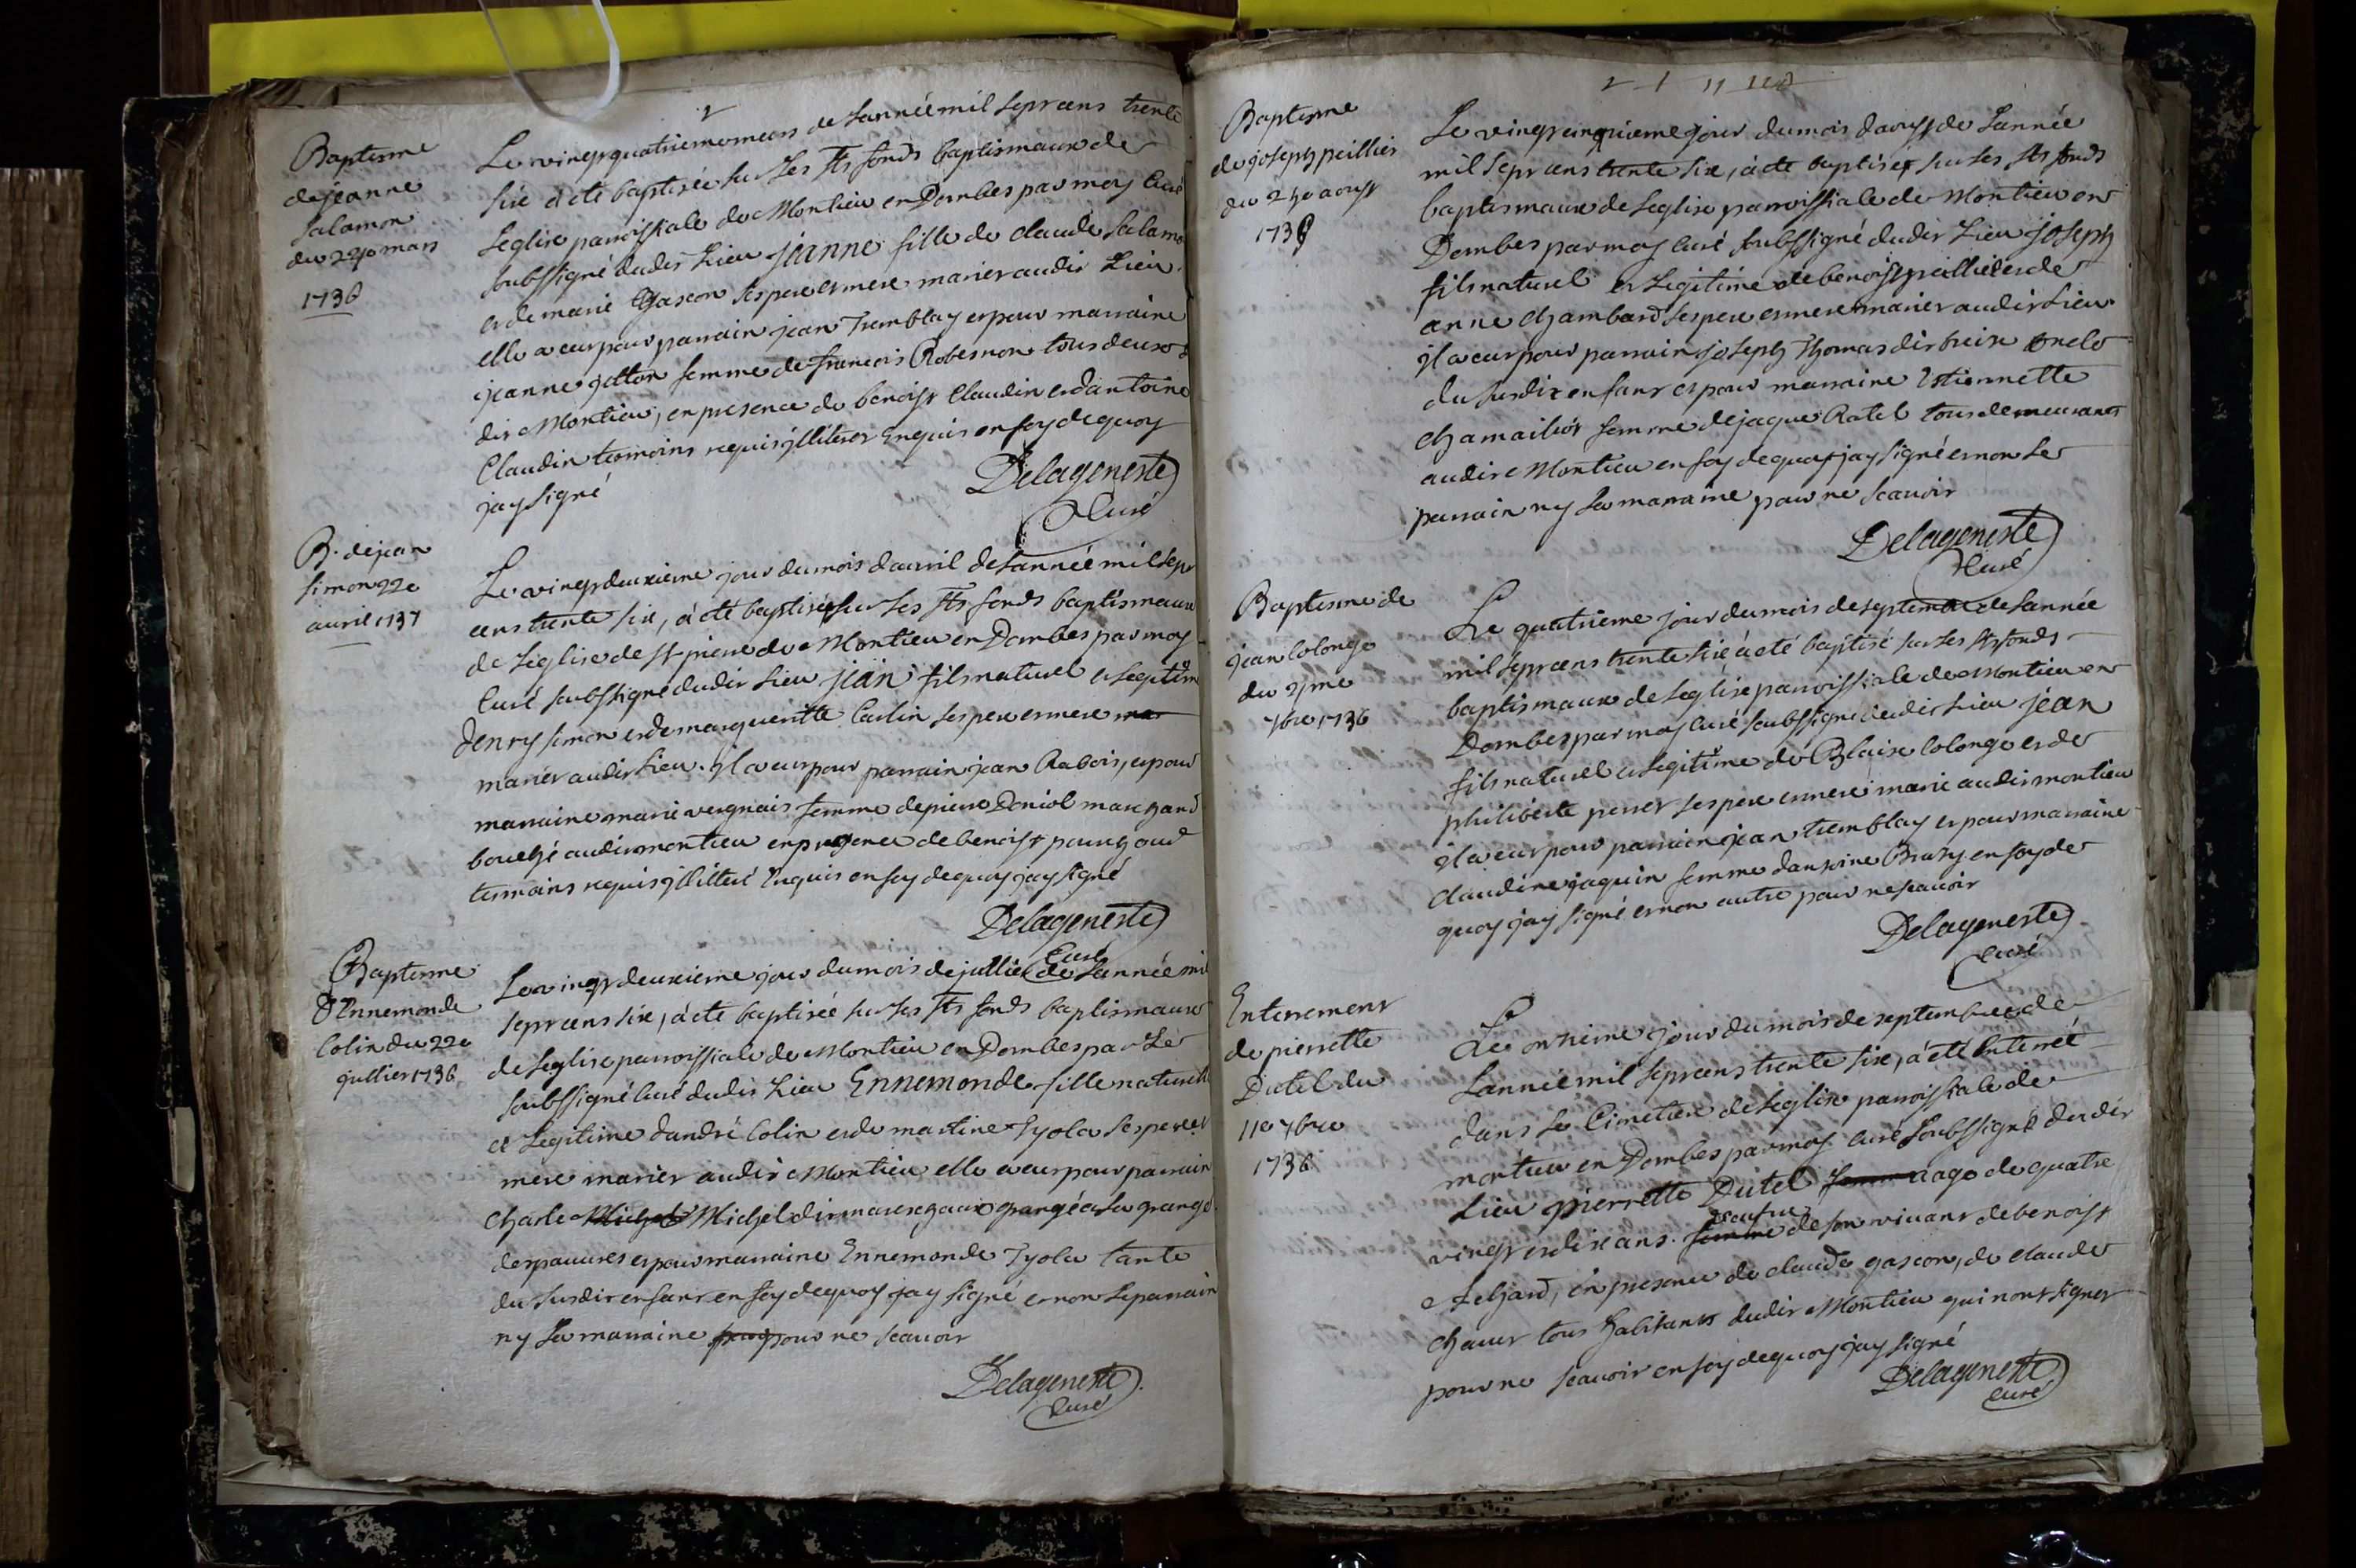 2
Baptesme
de jeanne
Salamon
du 24e mars
1736
Le vingt quatrieme mars de Lannée mil sept cens trente
six a été baptisée sur Les Sts fonds baptismaux de
Leglise parroissiale de Montieu en Dombes par moy Curé
soubssigné dudit Lieu jeanne fille de claude Salamo
et de marie Gascon ses pere et mere mariez audit Lieu.
elle a eu pour parrain jean Tremblay et pour marraine
jeanne femme de françois Robesnon tous deux
dit Montieu, en presence de benoist Claudin et dantoine
Claudin temoins requis illiterez Enquis en foy de quoy
jay signé
Delageneste
Curé
B. de jean
simon 22e
auril 1737
Le vingt deuxieme jour du mois dauril de Lannée mil sept
cens trente six, a été baptisé sur Les Sts fonds baptismaux
de Leglise de St pierre de Montieu en Dombes par moy
Curé soubssigné dudit Lieu jean fils naturel et legitime
denry simon et de margueritte Carlin ses pere et mere mar
mariez audit Lieu. Il a eu pour parrain jean Rabois, et pour
marraine marie vergnais femme de pierre Doniol marchand
bouché audit montieu en presence de benoist
temoins requis illitteré Enquis en foy de quoy jay signé
Delageneste
Curé
Baptesme
d'Ennemonde
Colin du 22e
juillier 1736
Le vingt deuxieme jour du mois de juillier de Lannée mil
sept cens six, a été baptisée sur Les Sts fonds baptismaux
de Leglise parroissiale de Montieu en Dombes par Le
soubssigné Curé dudit Lieu Ennemonde fille naturelle
et Legitime dandré Colin et de martine Tyola ses pere et
mere mariez audit Montieu elle a eu pour parrain
Charle Michel Michel dit marechaux grangé a La grange
des pauures et pour marraine Ennemonde Tyola tante
du susdit enfant en foy de quoy jay signé et non Le parrain
ny La marraine pour ne scauoir
Delageneste
Curé
Baptesme
de joseph peillier
du 25e aoust
1736
Le vingt cinquieme jour du mois daoust de Lannée
mil sept cens trente six, a été baptisé sur Les Sts fonds
baptismaux de Leglise parroissiale de Montieu en
Dombes par moy Curé soubssigné dudit Lieu joseph
fils naturel et Legitime de benoist peillier et de
anne Chambard ses pere et mere mariez audit Lieu
Il a eu pour parrain joseph Thomas dit oncle
du susdit enfant et pour marraine Estiennette
femme de jaque Ratel tous demeurants
audit Montieu en foy de quoy jay signé et non Le
parrain ny La marraine pour ne scauoir
Delageneste
Curé
Baptesme de
jean Colonge
du 4me
7bre 1736
Le quatrieme jour du mois de septembre de Lannée
mil sept cens trente six a été baptisé sur Les Sts fonds
baptismaux de Leglise parroissiale de Montieu en
Dombes par moy Curé soubssigné dudit Lieu jean
fils naturel et Legitime de Blaise Colonge et de
philiberte perret ses pere et mere marie audit montieu
il a eu pour parrain jean tremblay et pour marraine
Claudine jaquin femme dantoine en foy de
quoy jay signé et non autre pour ne scauoir
Delageneste
Curé
Enterrement
de pierrette
Dutel du
11e 7bre
1736
Le onzieme jour du mois de septembre de
Lannée mil sept cens trente six, a été Enterré
dans Le Cimetiere de Leglise parroissiale de
montieu en Dombes par moy Curé soubssigné dudit
Lieu pierrette Dutel femme agé de quatre
veufue
vingt et dix ans. femme de son viuant de benoist
en presence de claude gascon, de claude
tous habitants dudit Montieu qui nont signer
pour ne scauoir en foy de quoy jay signé
Delageneste
Curé